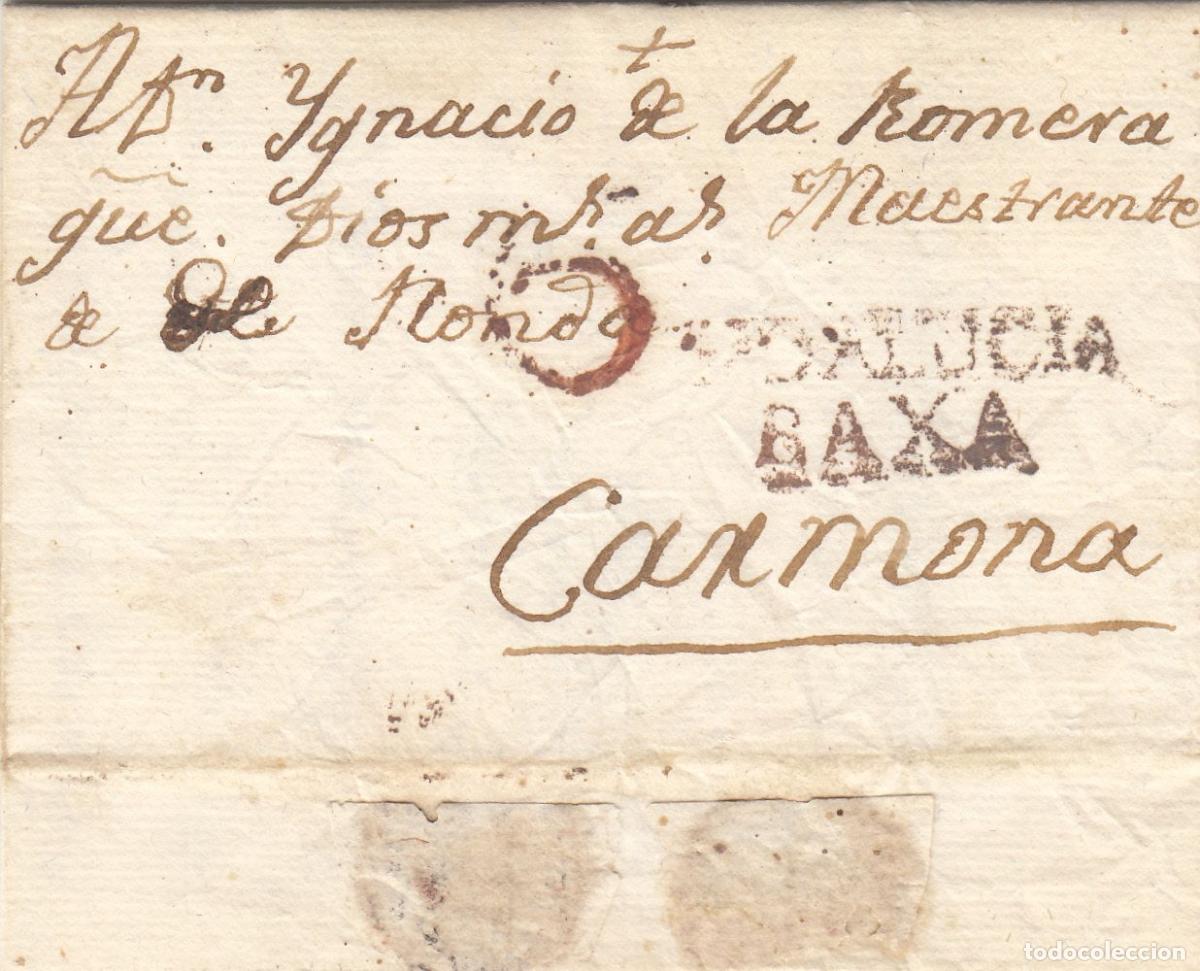 +
A Dn. Ygnacio de la Romera
gũe. Dios ms. as. Maestrante
de Ronda
ANDALUCIA
BAXA
Carmona
todocoleccion